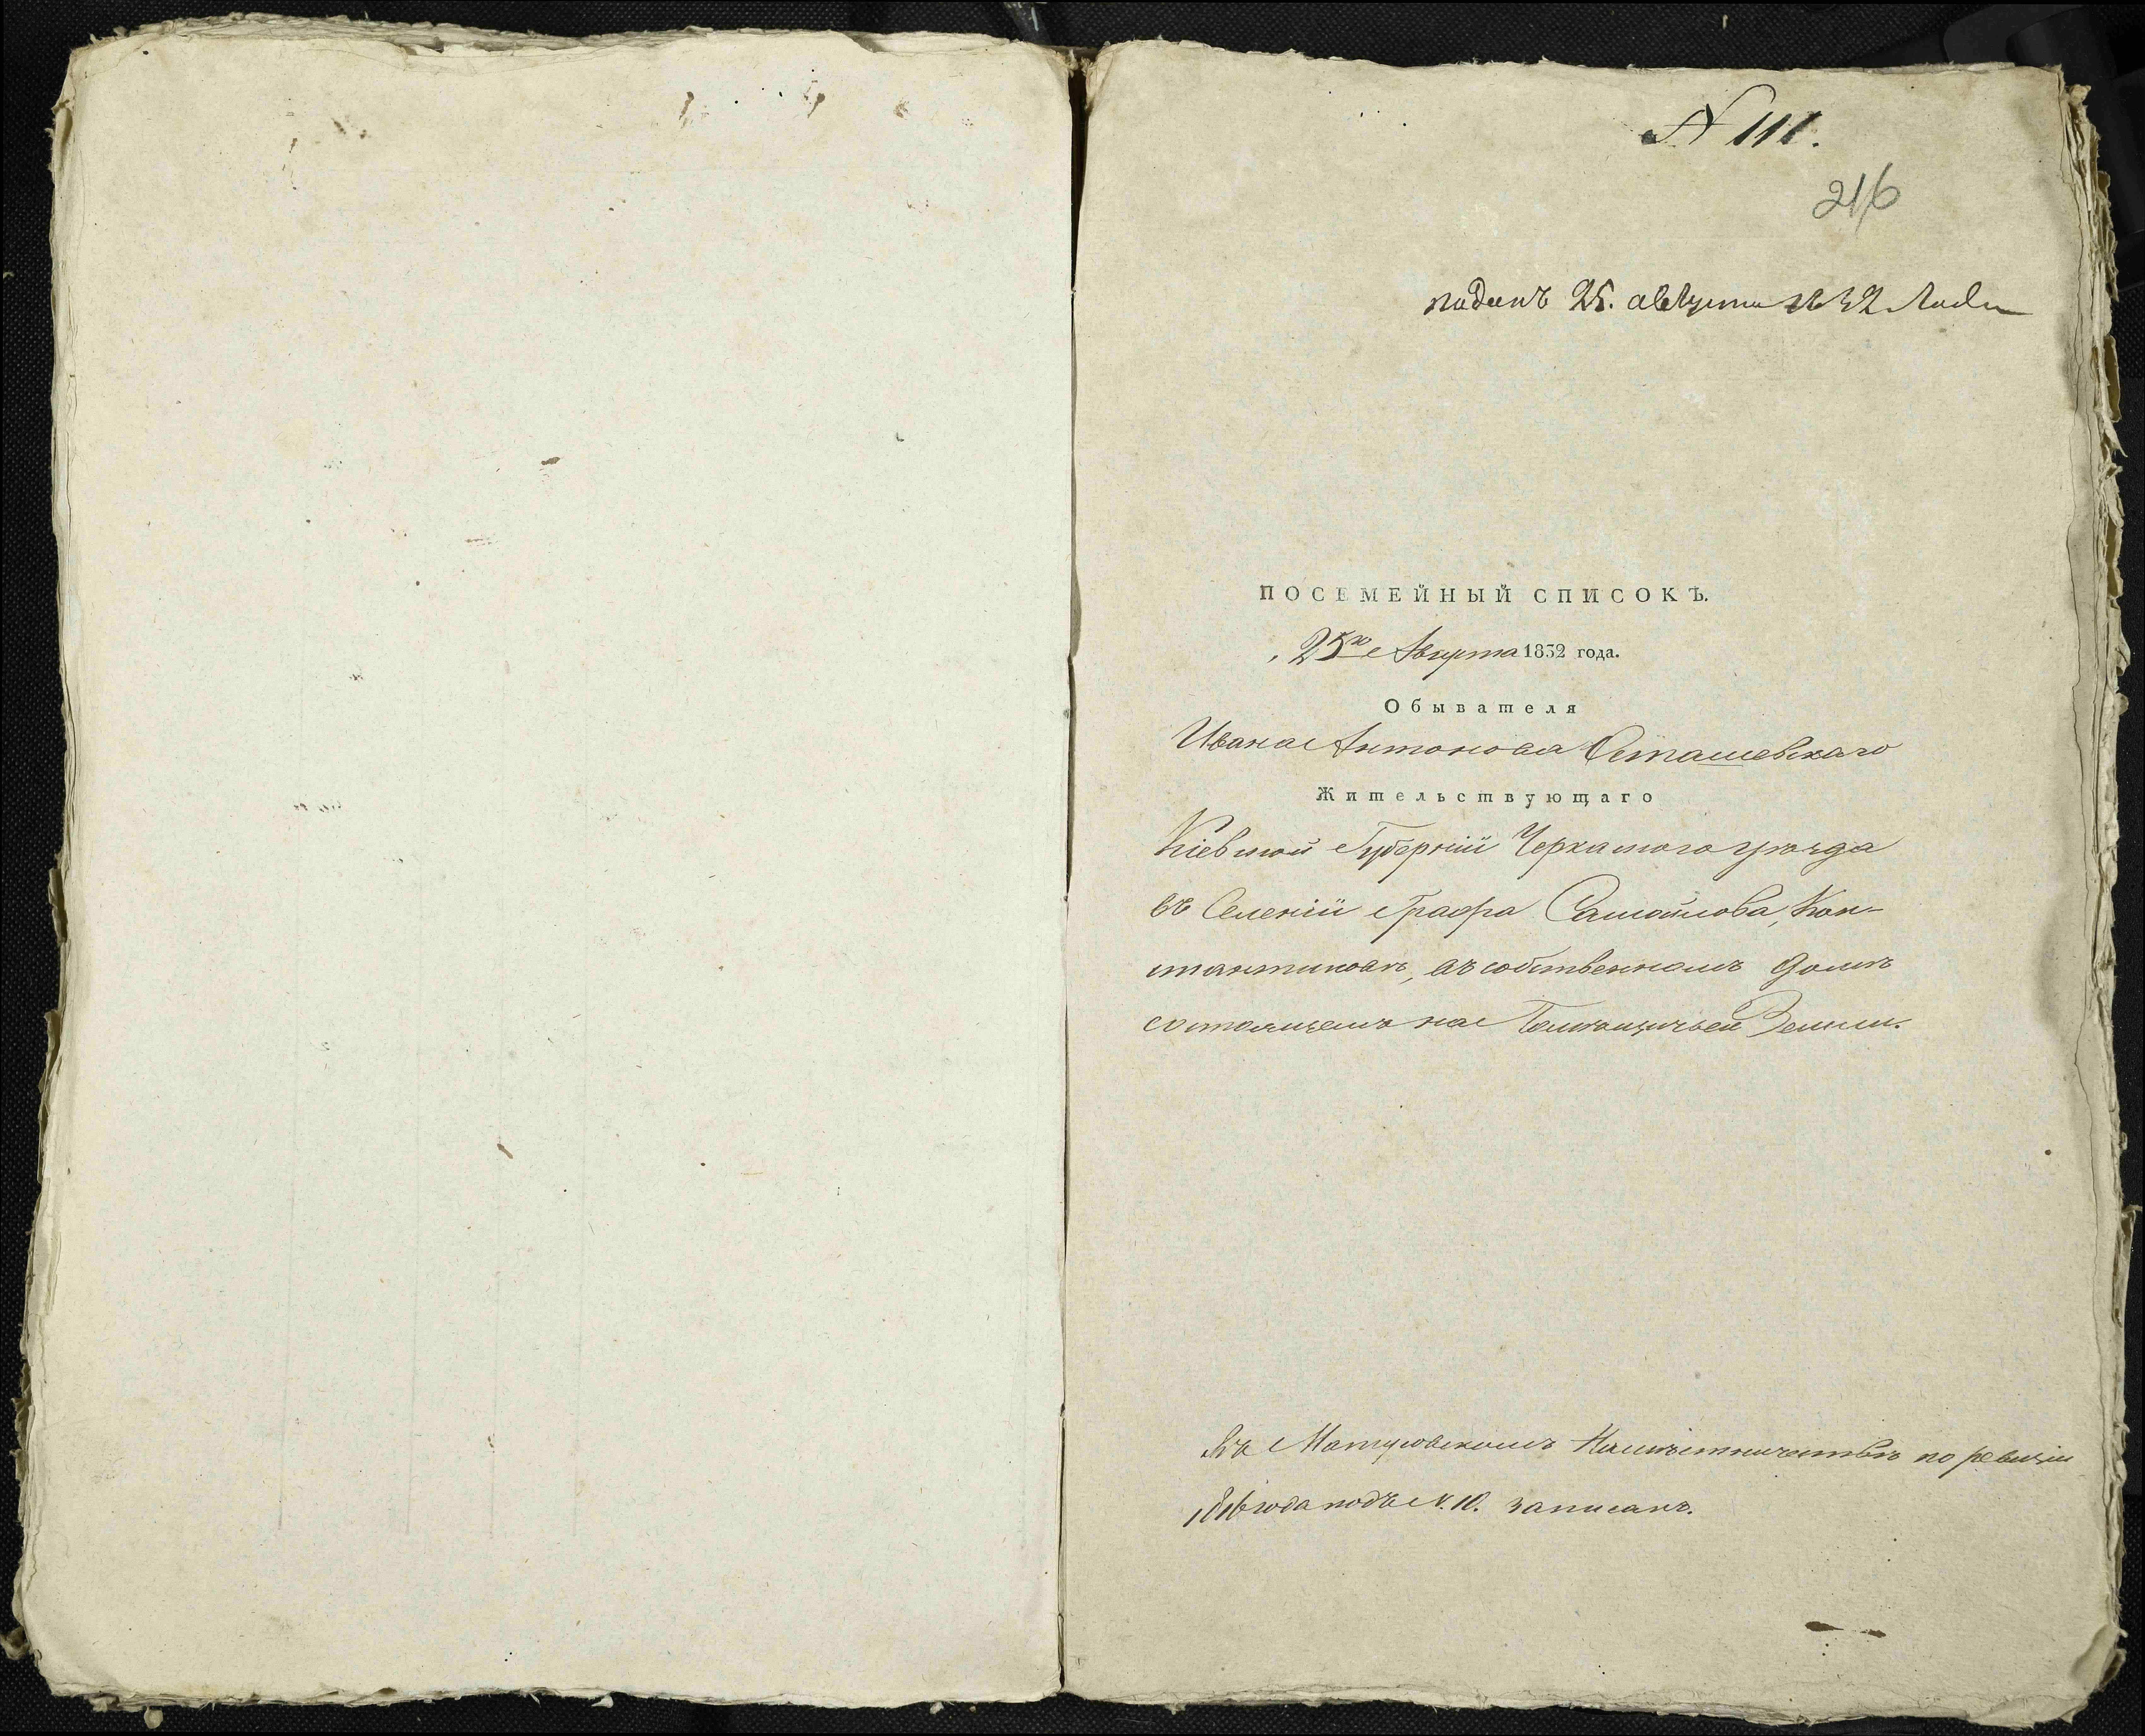 № 111.
216
поданъ 25. августа 1832 года
ПОСЕМЕЙНЫЙ СПИСОКЪ.
25го Августа 1832 года.
Обывателя
Ивана Антонова Осташевскаго
Жительствующаго
Кіевской Губерніи Черкаского уѣзда
въ Селеніи Графа Самойлова, Кон-
стантиновкѣ, въ собственномъ домѣ
состоящемъ на Помѣщичьей Земли.
Въ Матусовскомъ Намѣстничествѣ по ревизіи
1816 года подъ N. 10. записанъ.